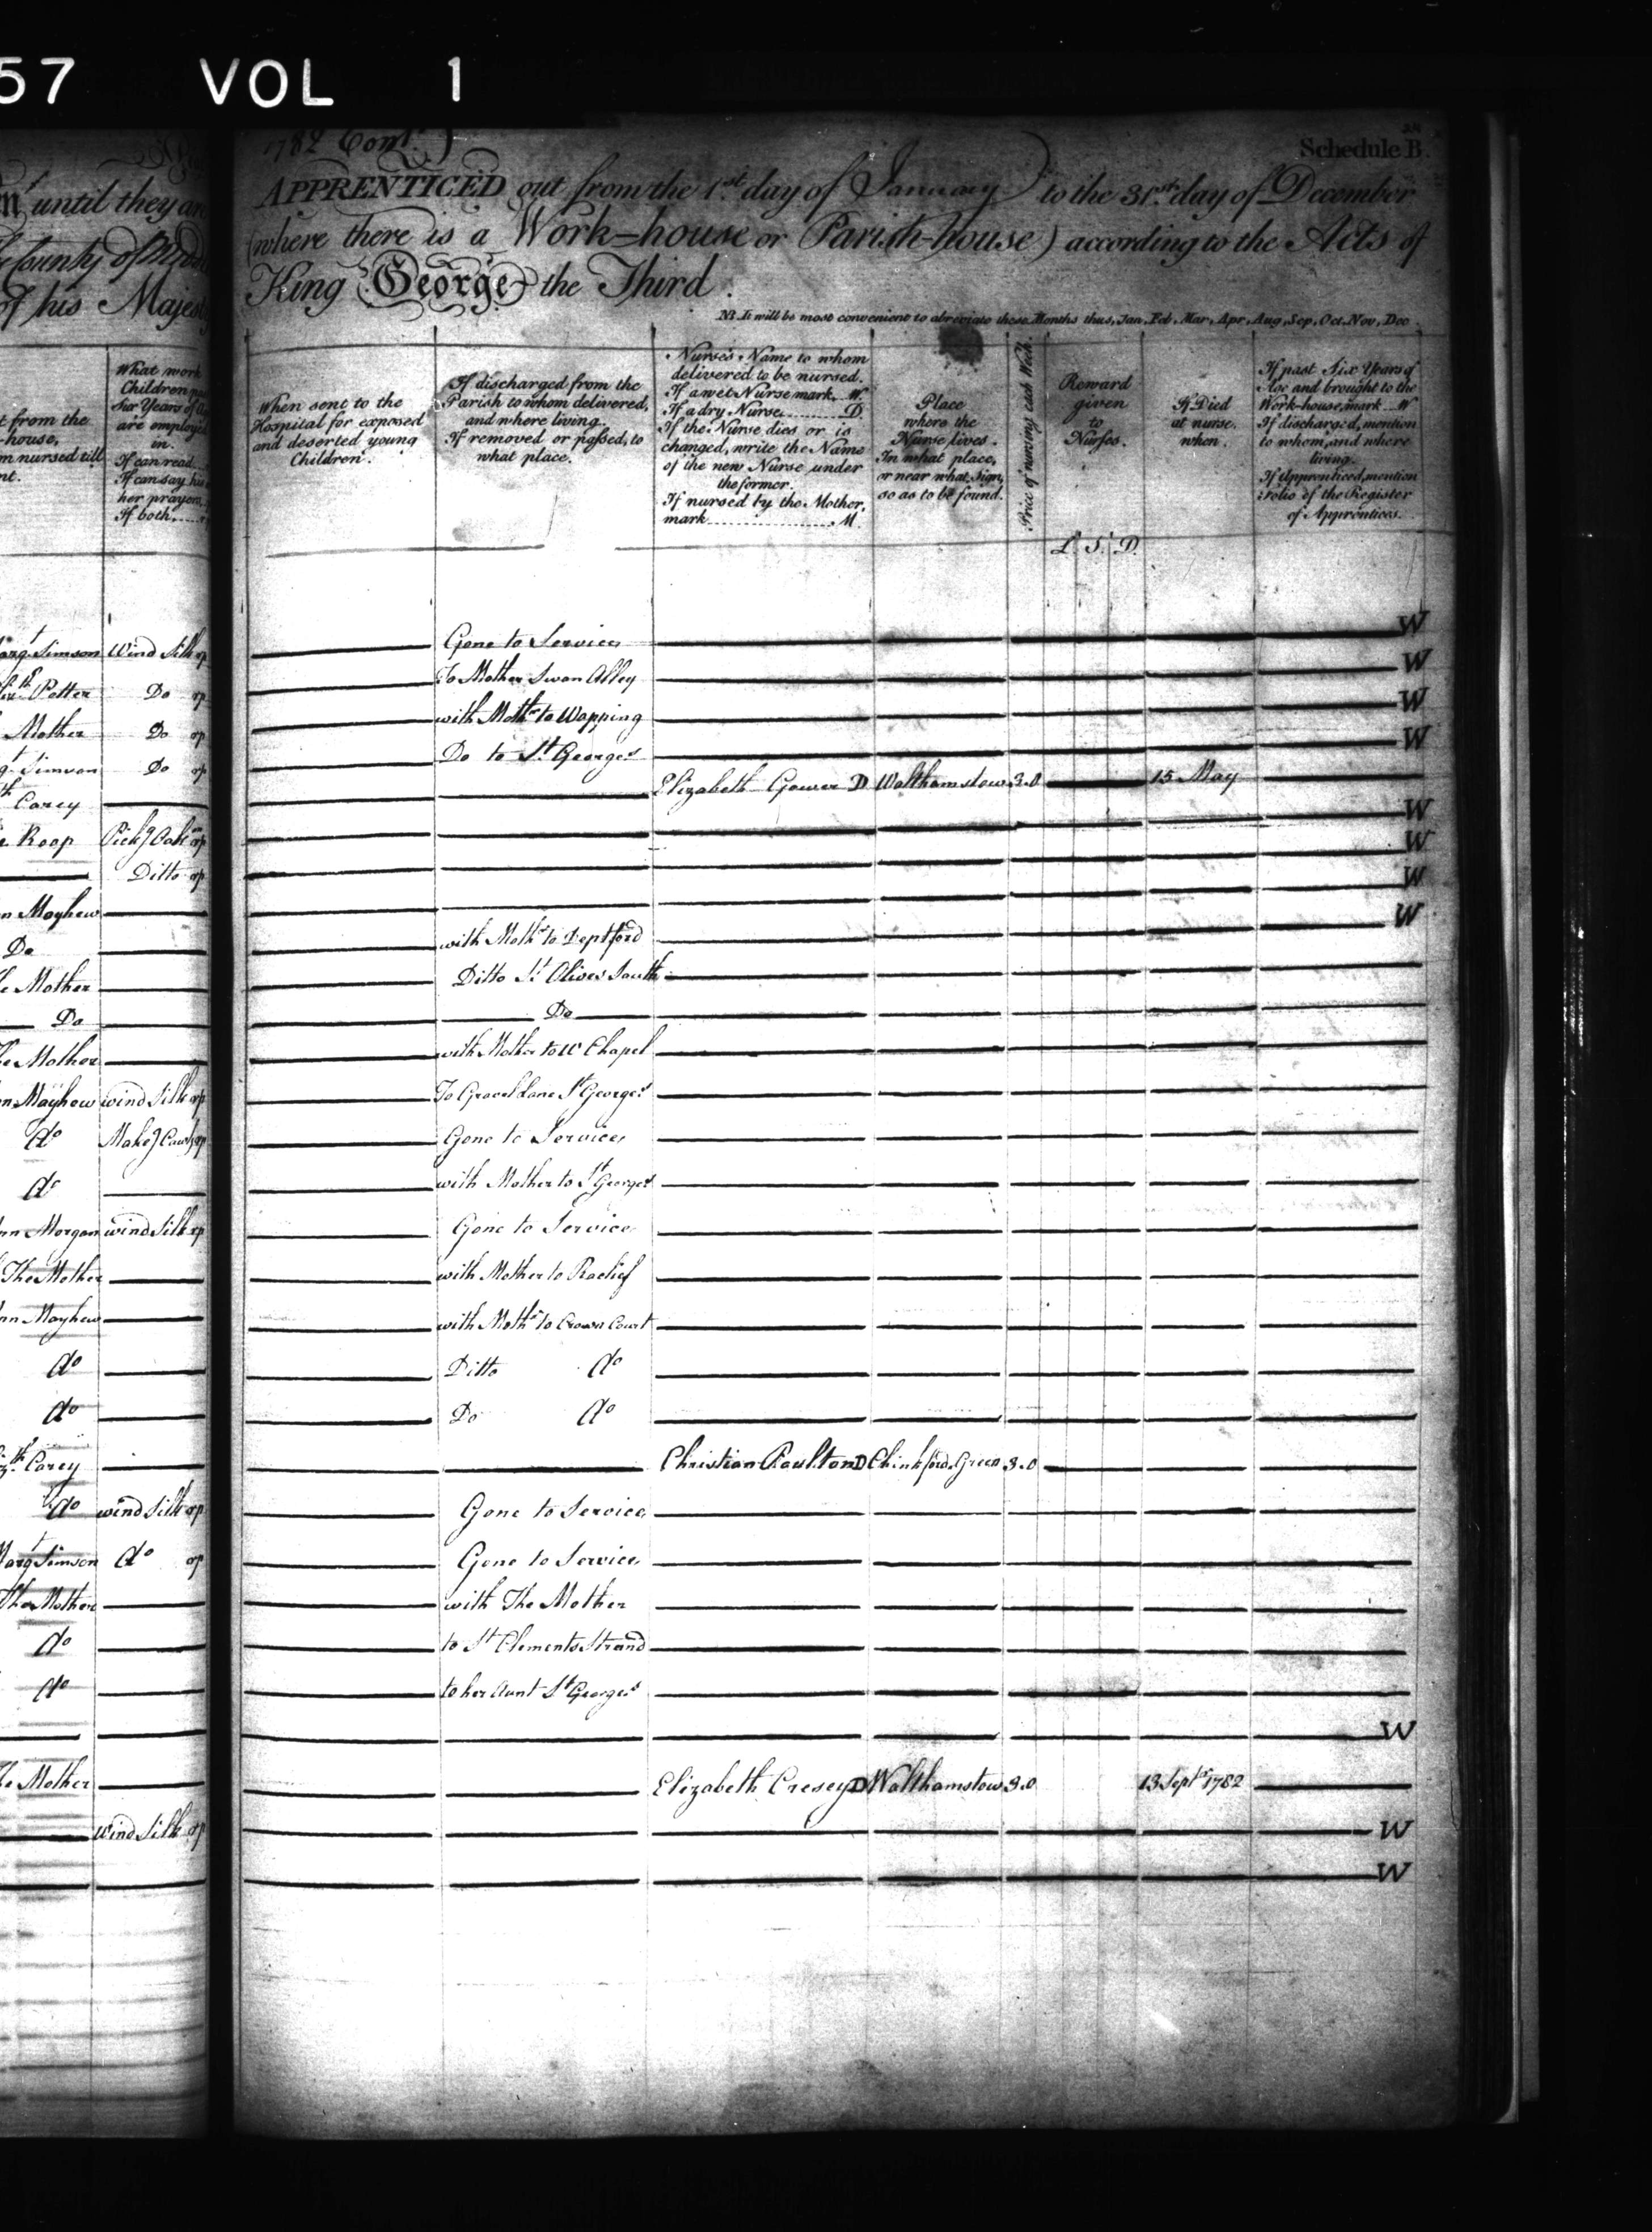 57 VOL 1
1782 Cont.d
24
Schedule B.
until they are
APPRENTICED out from the 1st day of January to the 31st day of December
County of
(where there is a Work-house or Parish-house) according to the Acts of
of his Majesty
King George the Third.
NB. It will be most convenient to abreviate these Months thus, Jan, Feb, Mar, Apr, Aug, Sep, Oct, Nov, Dec.
from the
-house,
nursed till
What work
Children
Six Years of
are employed
in.
If can read
If can say his
her prayers,
If both,
When sent to the
Hospital for exposed
and deserted young
Children.
If discharged from the
Parish to whom delivered,
and where living.
If removed or passed, to
what place.
Nurse's Name to whom
delivered to be nursed.
If a wet Nurse mark W.
If a dry Nurse D.
If the Nurse dies or is
changed, write the Name
of the new Nurse under
the former.
If nursed by the Mother,
mark M
Place
where the
Nurse lives.
In what place,
or near what Sign,
so as to be found.
Price of nursing each Week.
Reward
given
to
Nurses.
L. S. D.
If Died
at nurse,
when.
If past Six Years of
Age and brought to the
Work-house, mark W
If discharged, mention
to whom, and where
living.
If Apprenticed, mention
Folio of the Register
of Apprentices.
Simson Wind Silk rp Gone to Service W
Potter Do rp To Mother Swan Alley W
Mother Do rp with Mothr to Wapping W
Simson Do rp Do to St Georges W
Carey Elizabeth Gower D Walthamstow 3.0 15 May
Roop Pickg Oakm rp W
Ditto rp W
Mayhew W
Do with Mothr to Deptford W
Mother Ditto St Olives South
Do Do
Mother with Mother to W Chapel
Mayhew wind Silk rp To Gravel Lane St Georges
do Makeg rp Gone to Service
do with Mother to St Georges
Ann Morgan wind Silk rp Gone to Service
The Mother with Mother to
Ann Mayhew with Mothr to Crown Court
do Ditto do
do Do do
Carey Christian Poulton D Chinkford Green 3.0
do wind Silk rp Gone to Service
Simson do rp Gone to Service
The Mother with The Mother
do to St Clements Strand
do to her Aunt St Georges
W
The Mother Elizabeth Cresey D Walthamstow 3.0 13 Septr 1782
Wind Silk rp W
W